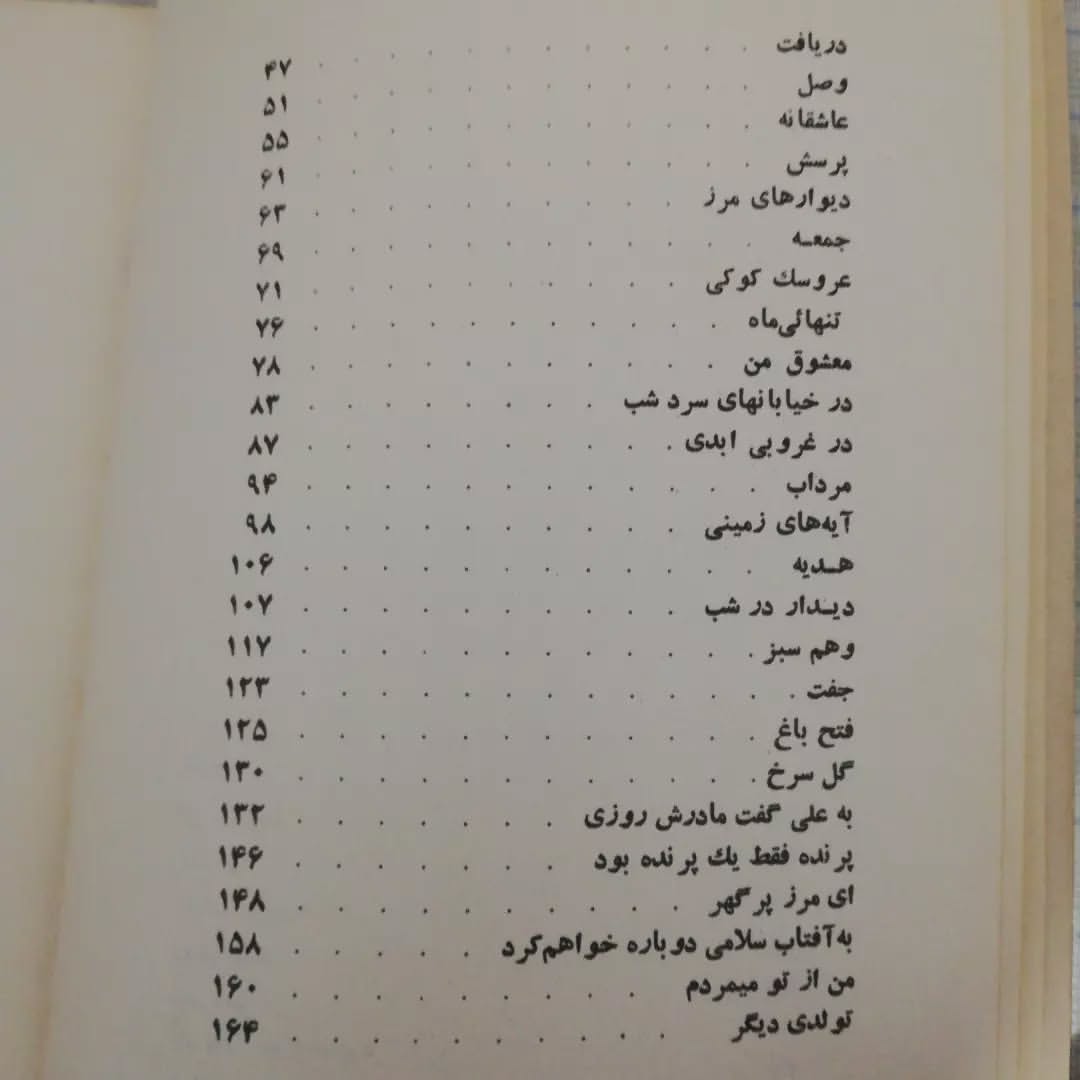 دریافت . . . . . . . . . . ۴۷
وصل . . . . . . . . . . ۵۱
عاشقانه . . . . . . . . . . ۵۵
پرسش . . . . . . . . . . ۶۱
دیوارهای مرز . . . . . . . . . . ۶۳
جمعـه . . . . . . . . . . ۶۹
عروسك كوكی . . . . . . . . . . ۷۱
تنهائی‌ماه . . . . . . . . . . ۷۶
معشوق من . . . . . . . . . . ۷۸
در خیابانهای سرد شب . . . . . . . . ۸۳
در غروبی ابدی . . . . . . . . . . ۸۷
مرداب . . . . . . . . . . ۹۴
آیه‌های زمینی . . . . . . . . . . ۹۸
هـدیه . . . . . . . . . . ۱۰۶
دیـدار در شب . . . . . . . . . . ۱۰۷
وهم سبز . . . . . . . . . . ۱۱۷
جفت . . . . . . . . . . ۱۲۳
فتح باغ . . . . . . . . . . ۱۲۵
گل سرخ . . . . . . . . . . ۱۳۰
به علی گفت مادرش روزی . . . . . . . ۱۳۲
پرنده فقط یك پرنده بود . . . . . . . ۱۴۶
ای مرز پرگهر . . . . . . . . . . ۱۴۸
به‌آفتاب سلامی دوباره خواهم‌كرد . . . . . ۱۵۸
من از تو میمردم . . . . . . . . . ۱۶۰
تولدی دیگر . . . . . . . . . . ۱۶۴